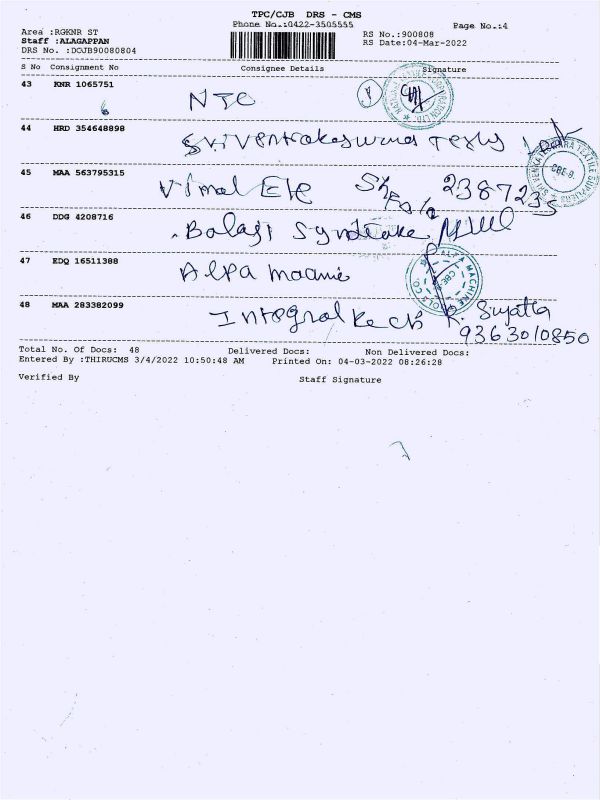 TPC/CJB DRS - CMS
Phone No.:0422-3505555
Page No.:4
Area :RGKNR ST
RS No.:900808
Staff :ALAGAPPAN
RS Date:04-Mar-2022
DRS No. :DOJB90080804
S No Consignment No Consignee Details Signature
43 KNR 1065751
NTC
44 HRD 354648898
45 MAA 563795315
Vimal Ele 238723
46 DDG 4208716
Balaji Syndicate
47 EDQ 16511388
Alpa
ALPA MACHINE TOOLS CO
48 MAA 283382099
Integral R. Sujatha
9363010850
Total No. Of Docs: 48 Delivered Docs: Non Delivered Docs:
Entered By :THIRUCMS 3/4/2022 10:50:48 AM Printed On: 04-03-2022 08:26:28
Verified By Staff Signature